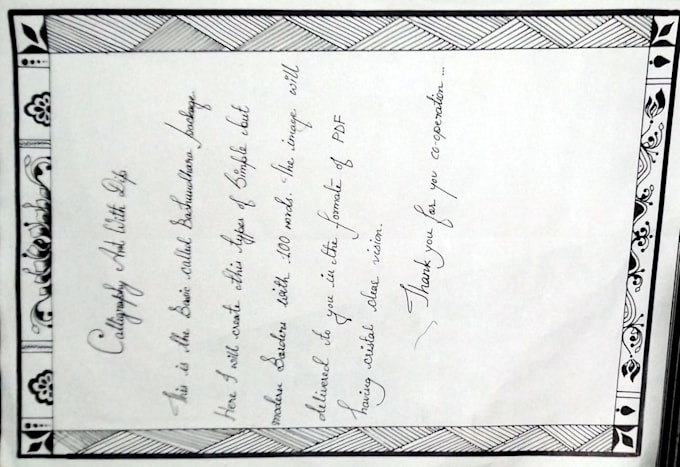 Calligraphy Art With Dip
This is the Basic called Bashundhara package
Here I will create this types of Simple but
modern Borders with 100 words. The image will
delivered to you in the formate of PDF
having cristal clear vision.
Thank you for you co-operation...